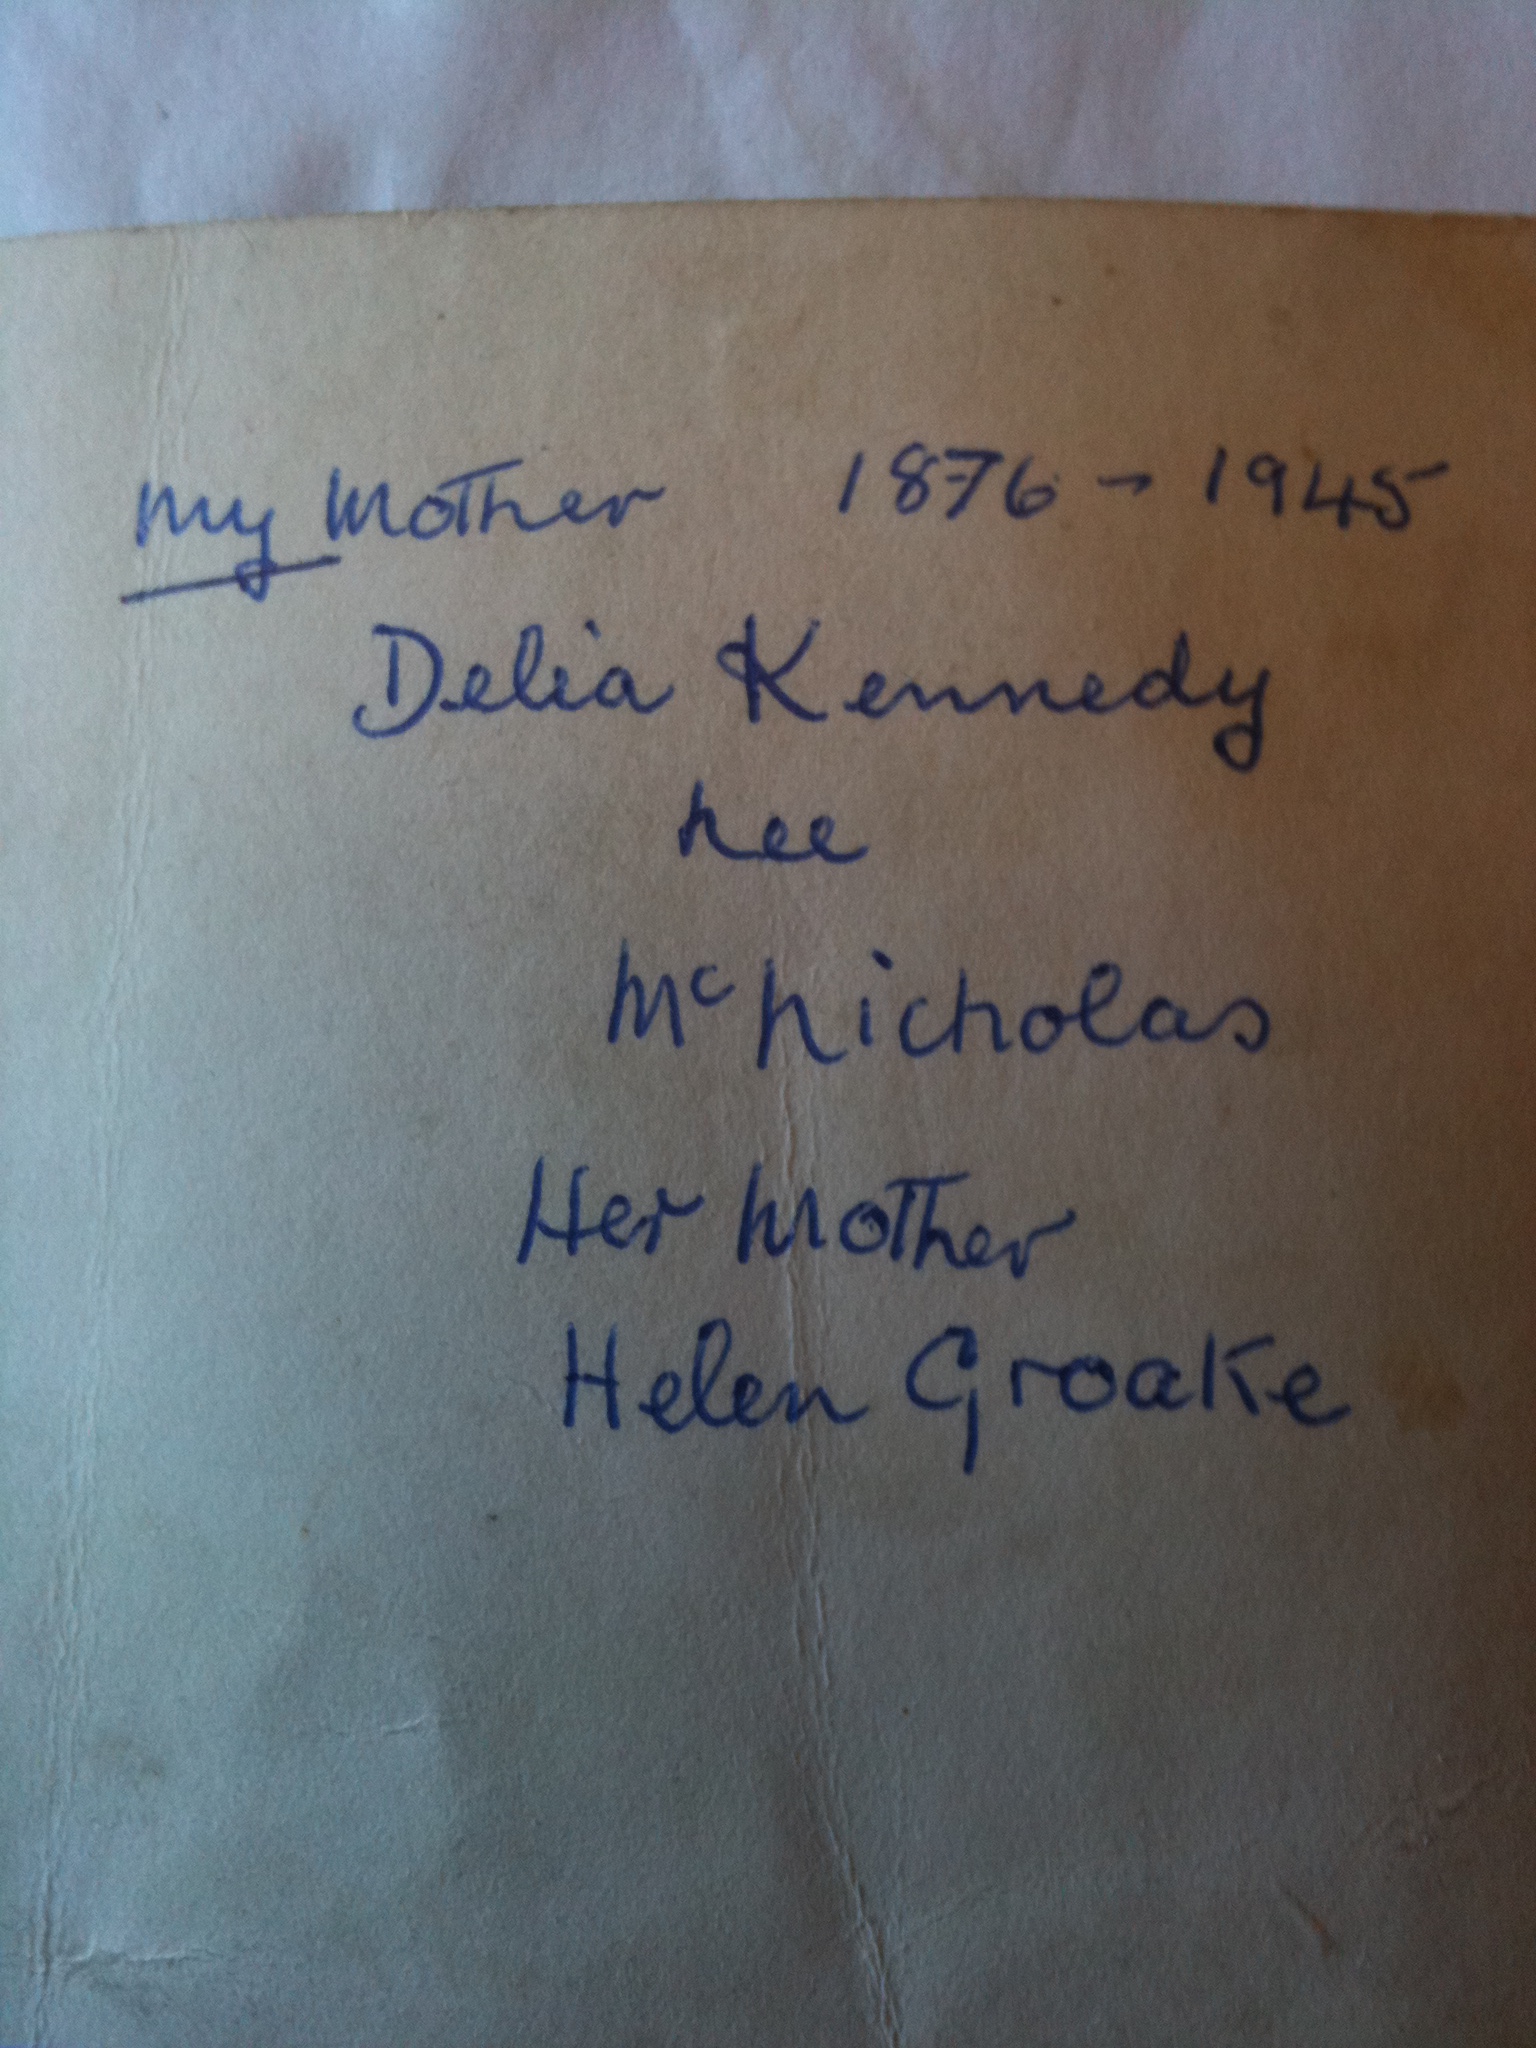 My Mother 1876 - 1945
Delia Kennedy
nee
Mc Nicholas
Her Mother
Helen Groake